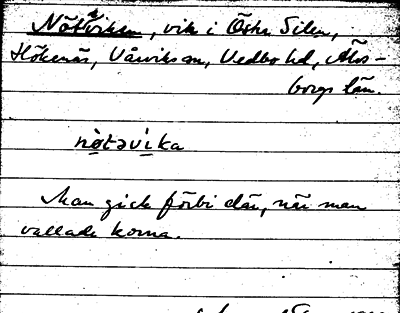 Nötviken, vik i Östra Silen,
Hökenäs, Vårviks sn, Vedbo hd, Älvs-
borgs län.
nö̀təvi̱ka
Man gick förbi där, när man
vallade korna.